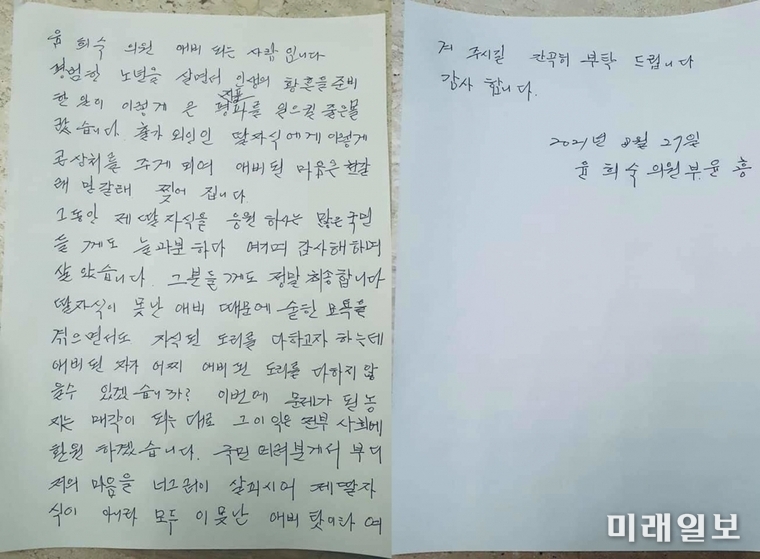 윤 희숙 의원 애비 되는 사람 입니다
평범한 노년을 살면서 인생의 황혼을 준비
한 일이 이렇게 큰 평파를 일으킬 줄은몰
랐습니다. 출가 외인인 딸자식에게 이렇게
큰상처를 주게 되여 애비된 마음은 천갈
래 만갈래 찢어 집니다.
그동안 제 딸자식을 응원 하시는 많은 국민
들 게도 늘과분 하다 여기며 감사해 하며
살 았습니다. 그분들 게도 정말 죄송합니다
딸자식이 못난 애비 때문에 숱한 모욕을
겪으면서도 자식된 도리를 다하고자 하는데
애비된 자가 어찌 애비된 도리를 다하지 않
을수 있겠습니까? 이번에 문제가 된 농
지는 매각이 되는 대로 그 이익은 전부 사회에
환원 하겠습니다. 국민 여러분께서 부디
저의 마음을 너그러이 살피시어 제 딸자
식이 아니라 모두 이 못난 애비 탓이라 여
겨 주시길 간곡히 부탁 드립니다
감사 합니다.
2021년 8월 27일
윤 희숙 의원 부. 윤 흥
미래일보